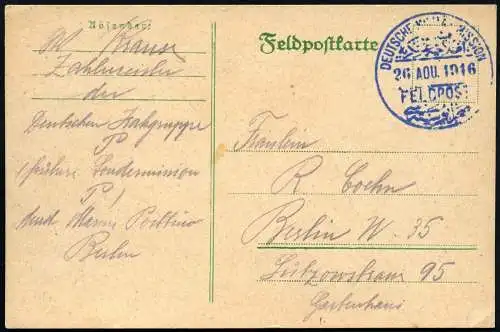 Absender:
M Krause
Zahlmeister
der
Deutschen
P
frühere Sondermission
P
durch Marine
Berlin
Feldpostkarte
DEUTSCHE MISSION
26 AOU. 1916
FELDPOST
Fräulein
R Coehn
Berlin W. 35
Lützowstrasse 95
Gartenhaus